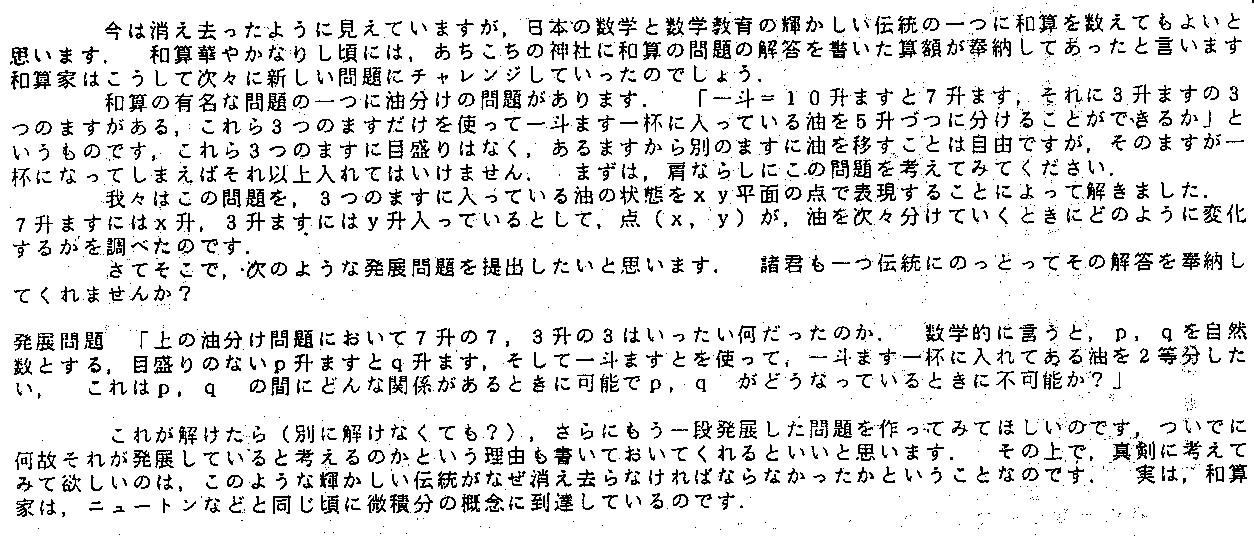 今は消え去ったように見えていますが，日本の数学と数学教育の輝かしい伝統の一つに和算を数えてもよいと
思います． 和算華やかなりし頃には，あちこちの神社に和算の問題の解答を書いた算額が奉納してあったと言います
和算家はこうして次々に新しい問題にチャレンジしていったのでしょう．
和算の有名な問題の一つに油分けの問題があります． 「一斗＝１０升ますと７升ます，それに３升ますの３
つのますがある，これら３つのますだけを使って一斗ます一杯に入っている油を５升づつに分けることができるか」と
いうものです，これら３つのますに目盛りはなく，あるますから別のますに油を移すことは自由ですが，そのますが一
杯になってしまえばそれ以上入れてはいけません． まずは，肩ならしにこの問題を考えてみてください．
我々はこの問題を，３つのますに入っている油の状態をｘｙ平面の点で表現することによって解きました．
７升ますにはｘ升，３升ますにはｙ升入っでいるとして，点（ｘ，ｙ）が，油を次々分けていくときにどのように変化
するがを調べたのです．
さてそこで，次のような発展問題を提出したいと思います． 諸君も一つ伝統にのっとってその解答を奉納し
てくれませんか？
発展問題 「上の油分け問題において７升の７，３升の３はいったい何だったのか． 数学的に言うと，ｐ，ｑを自然
数とする，目盛りのないｐ升ますとｑ升ます，そして一斗ますとを使って，一斗ます一杯に入れてある油を２等分した
い， これはｐ，ｑ の間にどんな関係があるときに可能でｐ，ｑ がどうなっているときに不可能か？」
これが解けたら（別に解けなくても？），さらにもう一段発展した問題を作ってみてほしいのです，ついでに
何故それが発展していると考えるのかという理由も書いておいてくれるといいと思います． その上で，真剣に考えて
みて欲しいのは，このような輝かしい伝統がなぜ消え去らなければならなかったかということなのです． 実は，和算
家は，ニュートンなどと同じ頃に微積分の概念に到達しているのです．